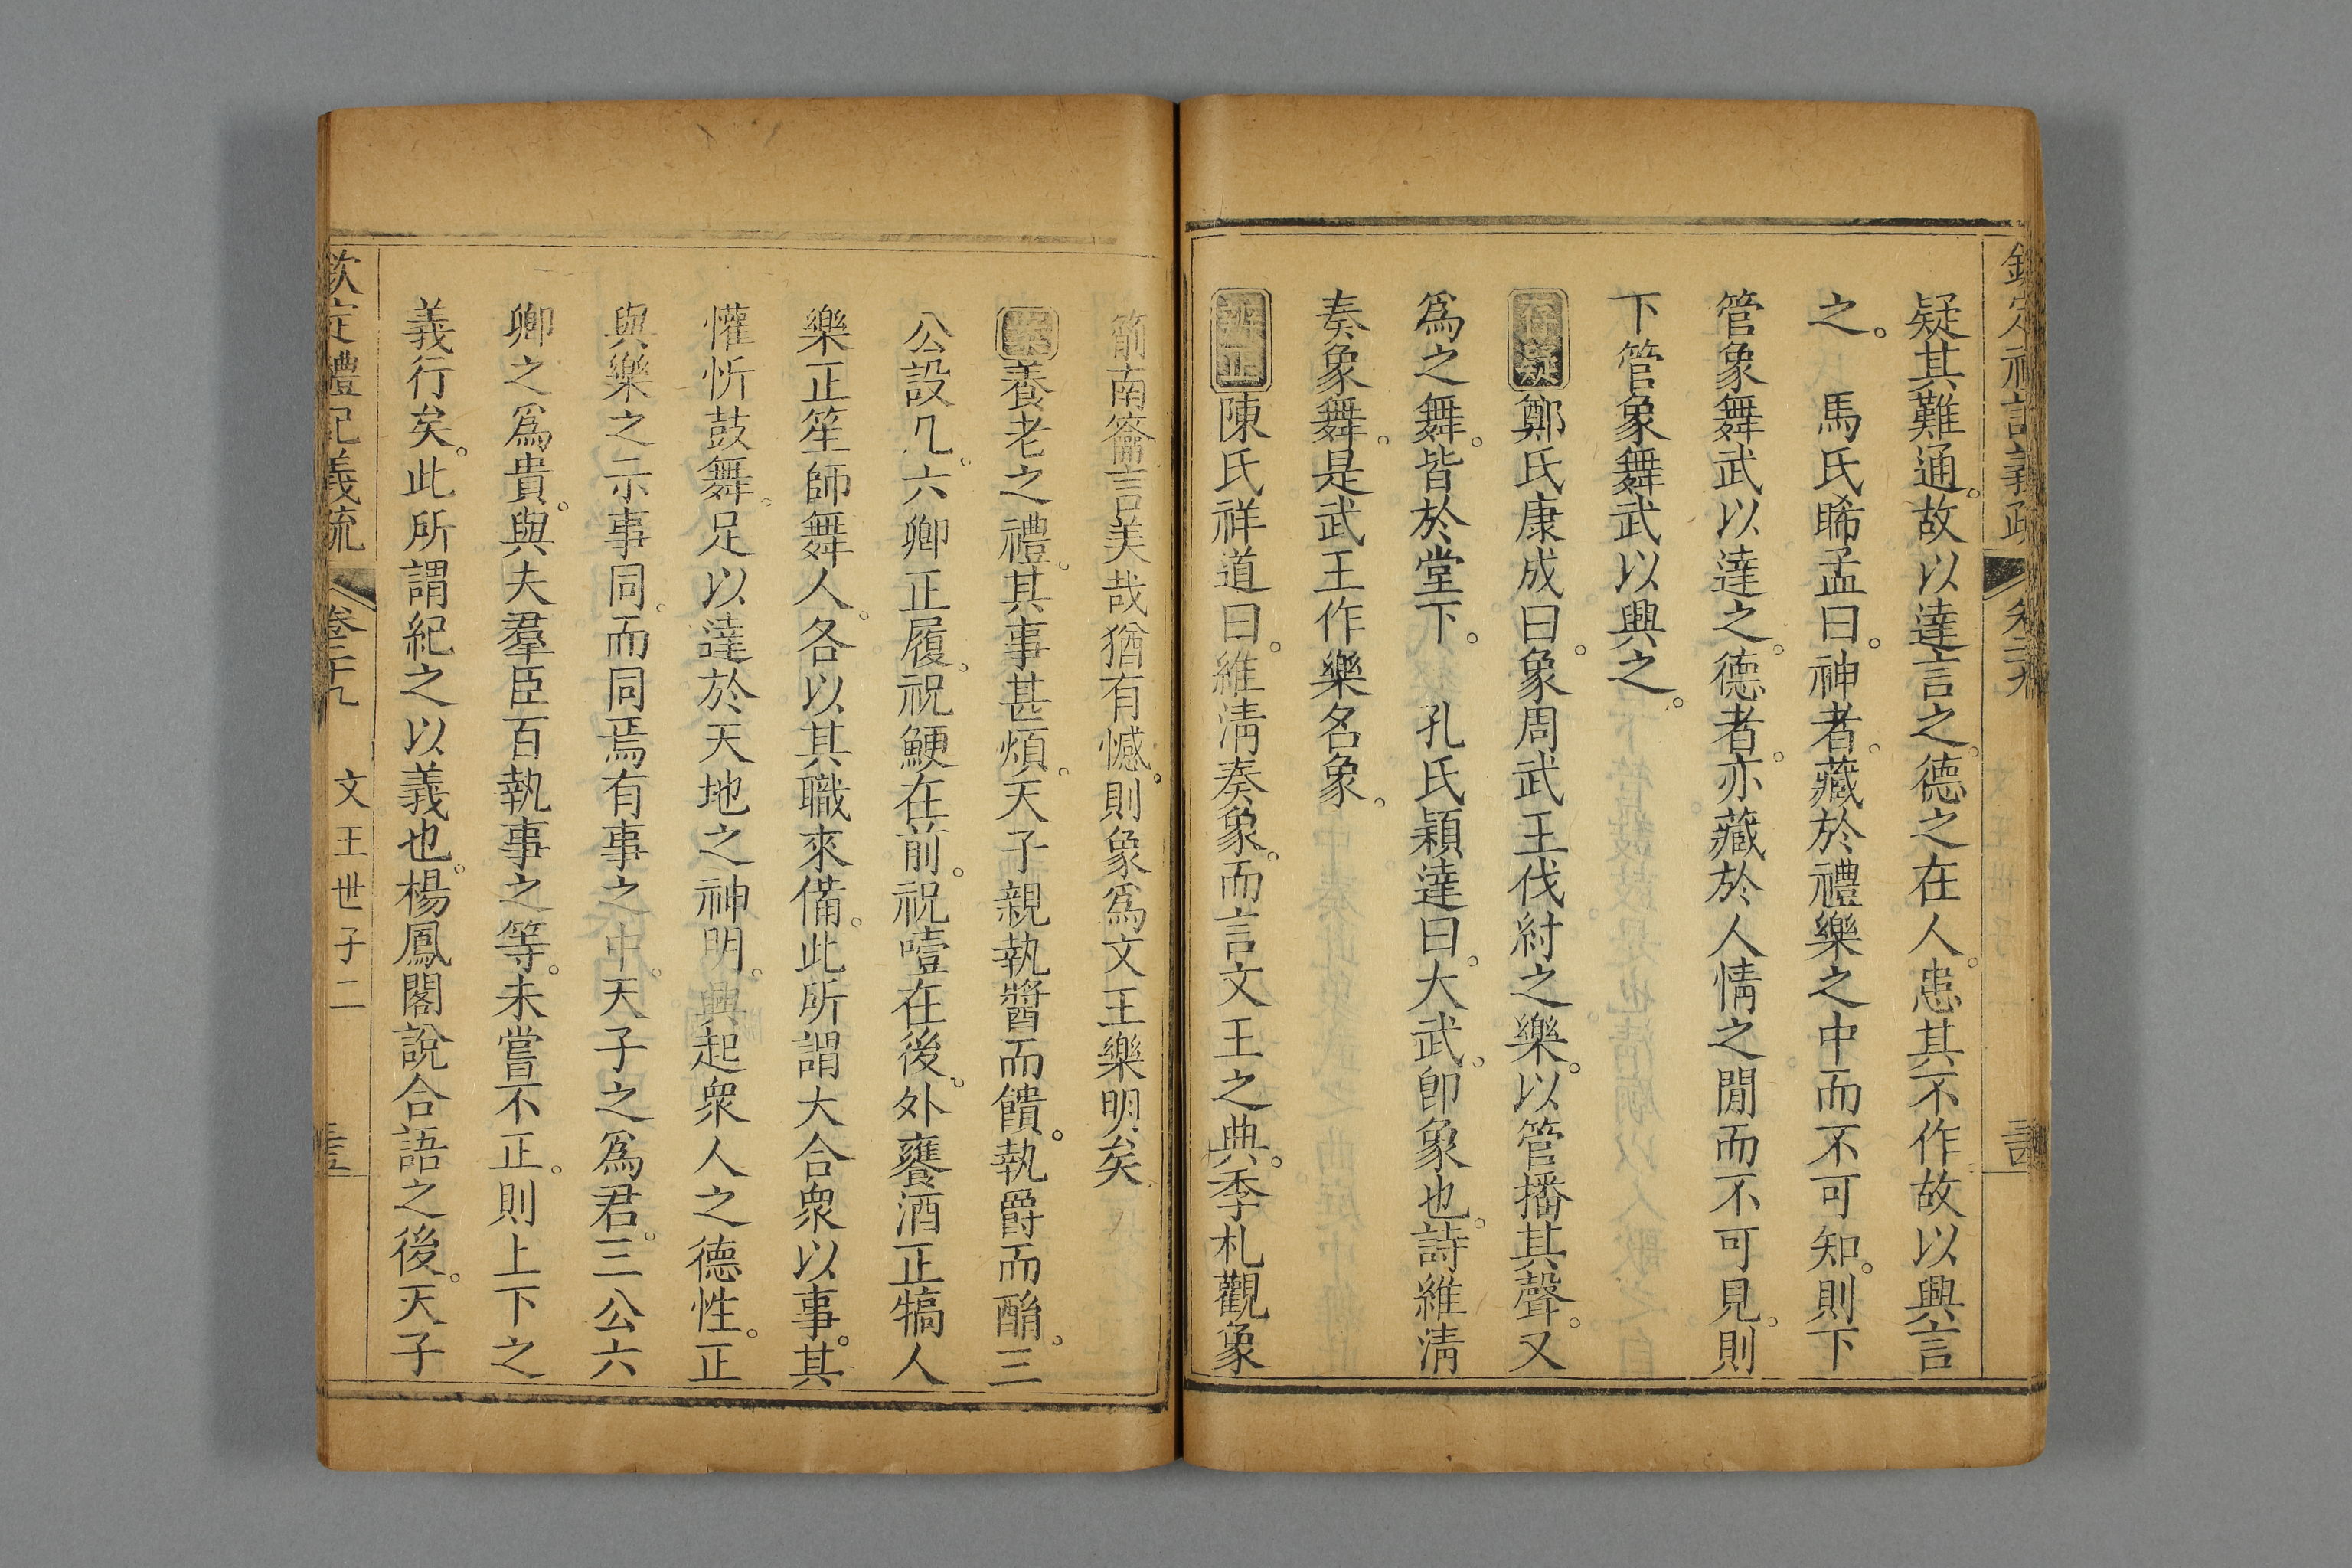 疑其難通。故以達言之。德之在人。患其不作故以興言
之。　馬氏睎孟曰。神者。藏於禮樂之中而不可知。則下
管象舞武以達之。德者。亦藏於人情之閒而不可見。則
下管象舞武以興之。
存疑鄭氏康成曰。象周武王伐紂之樂。以管播其聲。又
爲之舞。皆於堂下。　孔氏穎達曰。大武。卽象也。詩維淸
奏象舞。是武王作樂名象。
辨正陳氏祥道曰。維淸奏象。而言文王之典。季札觀象
箾南籥言美哉猶有憾。則象爲文王樂明矣
案養老之禮。其事甚煩。天子親執醬而饋。執爵而酳。三
公設几。六卿正履。祝鯁在前。祝噎在後。外饔酒正犒人
樂正笙師舞人。各以其職來備。此所謂大合衆以事。其
懽忻鼓舞。足以達於天地之神明。興起衆人之德性。正
與樂之示事同。而同焉有事之中。天子之爲君。三公六
卿之爲貴。與夫羣臣百執事之等。未嘗不正。則上下之
義行矣。此所謂紀之以義也。楊鳳閣說合語之後。天子
欽定禮記義疏　卷二十九　文王世子二